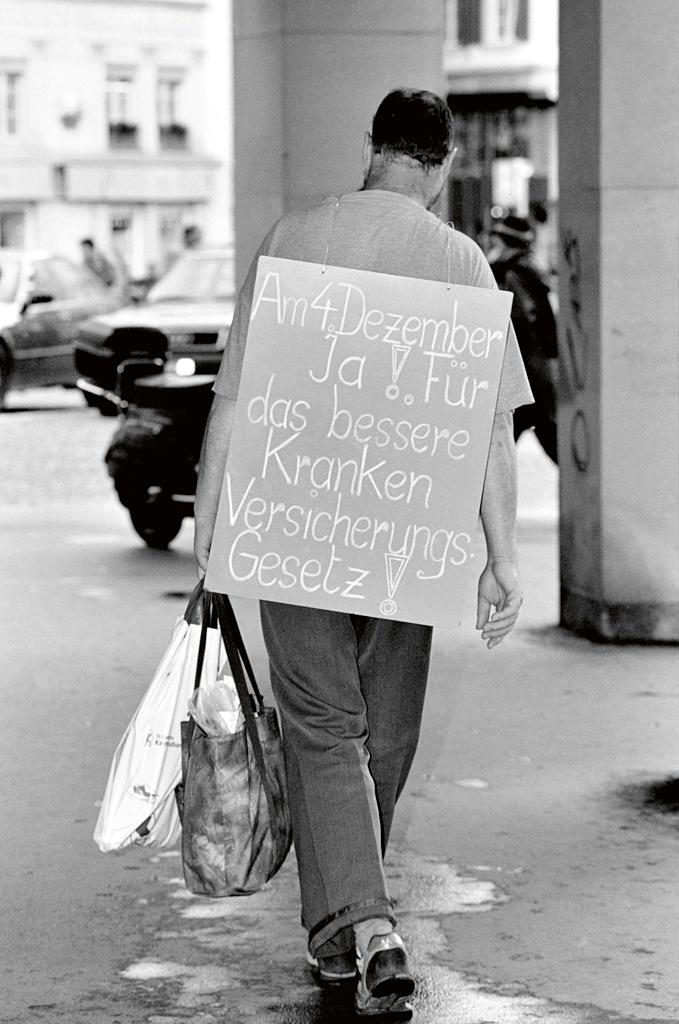 Am 4. Dezember
Ja ! Für
das bessere
Kranken
Versicherungs-
Gesetz!